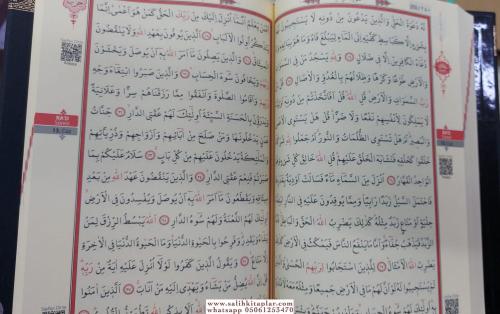 لَهُ دَعْوَةُ الْحَقِّ وَالَّذِينَ يَدْعُونَ مِنْ دُونِهِ لَا يَسْتَجِيبُونَ
بِشَيْءٍ إِلَّا كَبَاسِطِ كَفَّيْهِ إِلَى الْمَاءِ لِيَبْلُغَ فَاهُ وَمَا هُوَ بِبَالِغِهِ وَمَا
دُعَاءُ الْكَافِرِينَ إِلَّا فِي ضَلَالٍ وَلِلَّهِ يَسْجُدُ مَنْ فِي السَّمَوَاتِ
وَالْأَرْضِ طَوْعًا وَكَرْهًا وَظِلَالُهُمْ بِالْغُدُوِّ وَالْآصَالِ قُلْ مَنْ
رَبُّ السَّمَوَاتِ وَالْأَرْضِ قُلِ اللَّهُ قُلْ أَفَاتَّخَذْتُمْ مِنْ دُونِهِ
أَوْلِيَاءَ لَا يَمْلِكُونَ لِأَنْفُسِهِمْ نَفْعًا وَلَا ضَرًّا قُلْ هَلْ يَسْتَوِي الْأَعْمَى
وَالْبَصِيرُ أَمْ هَلْ تَسْتَوِي الظُّلُمَاتُ وَالنُّورُ أَمْ جَعَلُوا لِلَّهِ شُرَكَاءَ
خَلَقُوا كَخَلْقِهِ فَتَشَابَهَ الْخَلْقُ عَلَيْهِمْ قُلِ اللَّهُ خَالِقُ كُلِّ شَيْءٍ وَهُوَ
الْوَاحِدُ الْقَهَّارُ أَنْزَلَ مِنَ السَّمَاءِ مَاءً فَسَالَتْ أَوْدِيَةٌ بِقَدَرِهَا
فَاحْتَمَلَ السَّيْلُ زَبَدًا رَابِيًا وَمِمَّا يُوقِدُونَ عَلَيْهِ فِي النَّارِ ابْتِغَاءَ
حِلْيَةٍ أَوْ مَتَاعٍ زَبَدٌ مِثْلُهُ كَذَلِكَ يَضْرِبُ اللَّهُ الْحَقَّ وَالْبَاطِلَ فَأَمَّا
الزَّبَدُ فَيَذْهَبُ جُفَاءً وَأَمَّا مَا يَنْفَعُ النَّاسَ فَيَمْكُثُ فِي الْأَرْضِ كَذَلِكَ
يَضْرِبُ اللَّهُ الْأَمْثَالَ لِلَّذِينَ اسْتَجَابُوا لِرَبِّهِمُ الْحُسْنَى وَالَّذِينَ
لَمْ يَسْتَجِيبُوا لَهُ لَوْ أَنَّ لَهُمْ مَا فِي الْأَرْضِ جَمِيعًا وَمِثْلَهُ مَعَهُ
أَفَمَنْ يَعْلَمُ أَنَّمَا أُنْزِلَ إِلَيْكَ مِنْ رَبِّكَ الْحَقُّ كَمَنْ هُوَ أَعْمَى إِنَّمَا
يَتَذَكَّرُ أُولُوا الْأَلْبَابِ الَّذِينَ يُوفُونَ بِعَهْدِ اللَّهِ وَلَا يَنْقُضُونَ
الْمِيثَاقَ وَالَّذِينَ يَصِلُونَ مَا أَمَرَ اللَّهُ بِهِ أَنْ يُوصَلَ وَيَخْشَوْنَ
رَبَّهُمْ وَيَخَافُونَ سُوءَ الْحِسَابِ وَالَّذِينَ صَبَرُوا ابْتِغَاءَ وَجْهِ
رَبِّهِمْ وَأَقَامُوا الصَّلَوةَ وَأَنْفَقُوا مِمَّا رَزَقْنَاهُمْ سِرًّا وَعَلَانِيَةً
وَيَدْرَؤُنَ بِالْحَسَنَةِ السَّيِّئَةَ أُولَئِكَ لَهُمْ عُقْبَى الدَّارِ جَنَّاتُ
عَدْنٍ يَدْخُلُونَهَا وَمَنْ صَلَحَ مِنْ آبَائِهِمْ وَأَزْوَاجِهِمْ وَذُرِّيَّاتِهِمْ
وَالْمَلَئِكَةُ يَدْخُلُونَ عَلَيْهِمْ مِنْ كُلِّ بَابٍ سَلَامٌ عَلَيْكُمْ بِمَا
صَبَرْتُمْ فَنِعْمَ عُقْبَى الدَّارِ وَالَّذِينَ يَنْقُضُونَ عَهْدَ اللَّهِ مِنْ بَعْدِ
مِيثَاقِهِ وَيَقْطَعُونَ مَا أَمَرَ اللَّهُ بِهِ أَنْ يُوصَلَ وَيُفْسِدُونَ فِي الْأَرْضِ
أُولَئِكَ لَهُمُ اللَّعْنَةُ وَلَهُمْ سُوءُ الدَّارِ اللَّهُ يَبْسُطُ الرِّزْقَ لِمَنْ
يَشَاءُ وَيَقْدِرُ وَفَرِحُوا بِالْحَيَوةِ الدُّنْيَا وَمَا الْحَيَوةُ الدُّنْيَا فِي الْآخِرَةِ
إِلَّا مَتَاعٌ وَيَقُولُ الَّذِينَ كَفَرُوا لَوْلَا أُنْزِلَ عَلَيْهِ آيَةٌ مِنْ رَبِّهِ
قُلْ إِنَّ اللَّهَ يُضِلُّ مَنْ يَشَاءُ وَيَهْدِي إِلَيْهِ مَنْ أَنَابَ الَّذِينَ آمَنُوا
www.salihkitaplar.com
whatsapp 05061253470